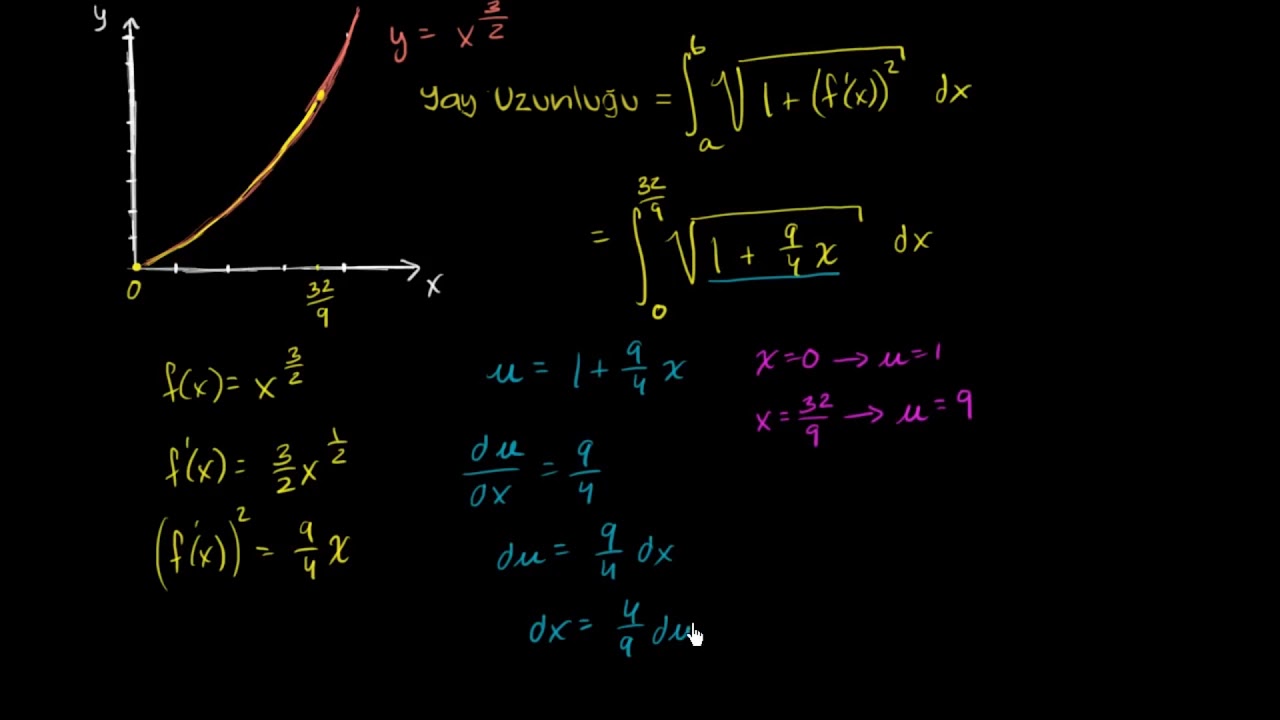 y
y = x^(3/2)
Yay Uzunluğu = ∫_a^b √(1 + (f'(x))²) dx
= ∫_0^(32/9) √(1 + 9/4 x) dx
0
32/9
x
f(x) = x^(3/2)
f'(x) = 3/2 x^(1/2)
(f'(x))² = 9/4 x
u = 1 + 9/4 x
du/dx = 9/4
du = 9/4 dx
dx = 4/9 du
x=0 → u=1
x=32/9 → u=9